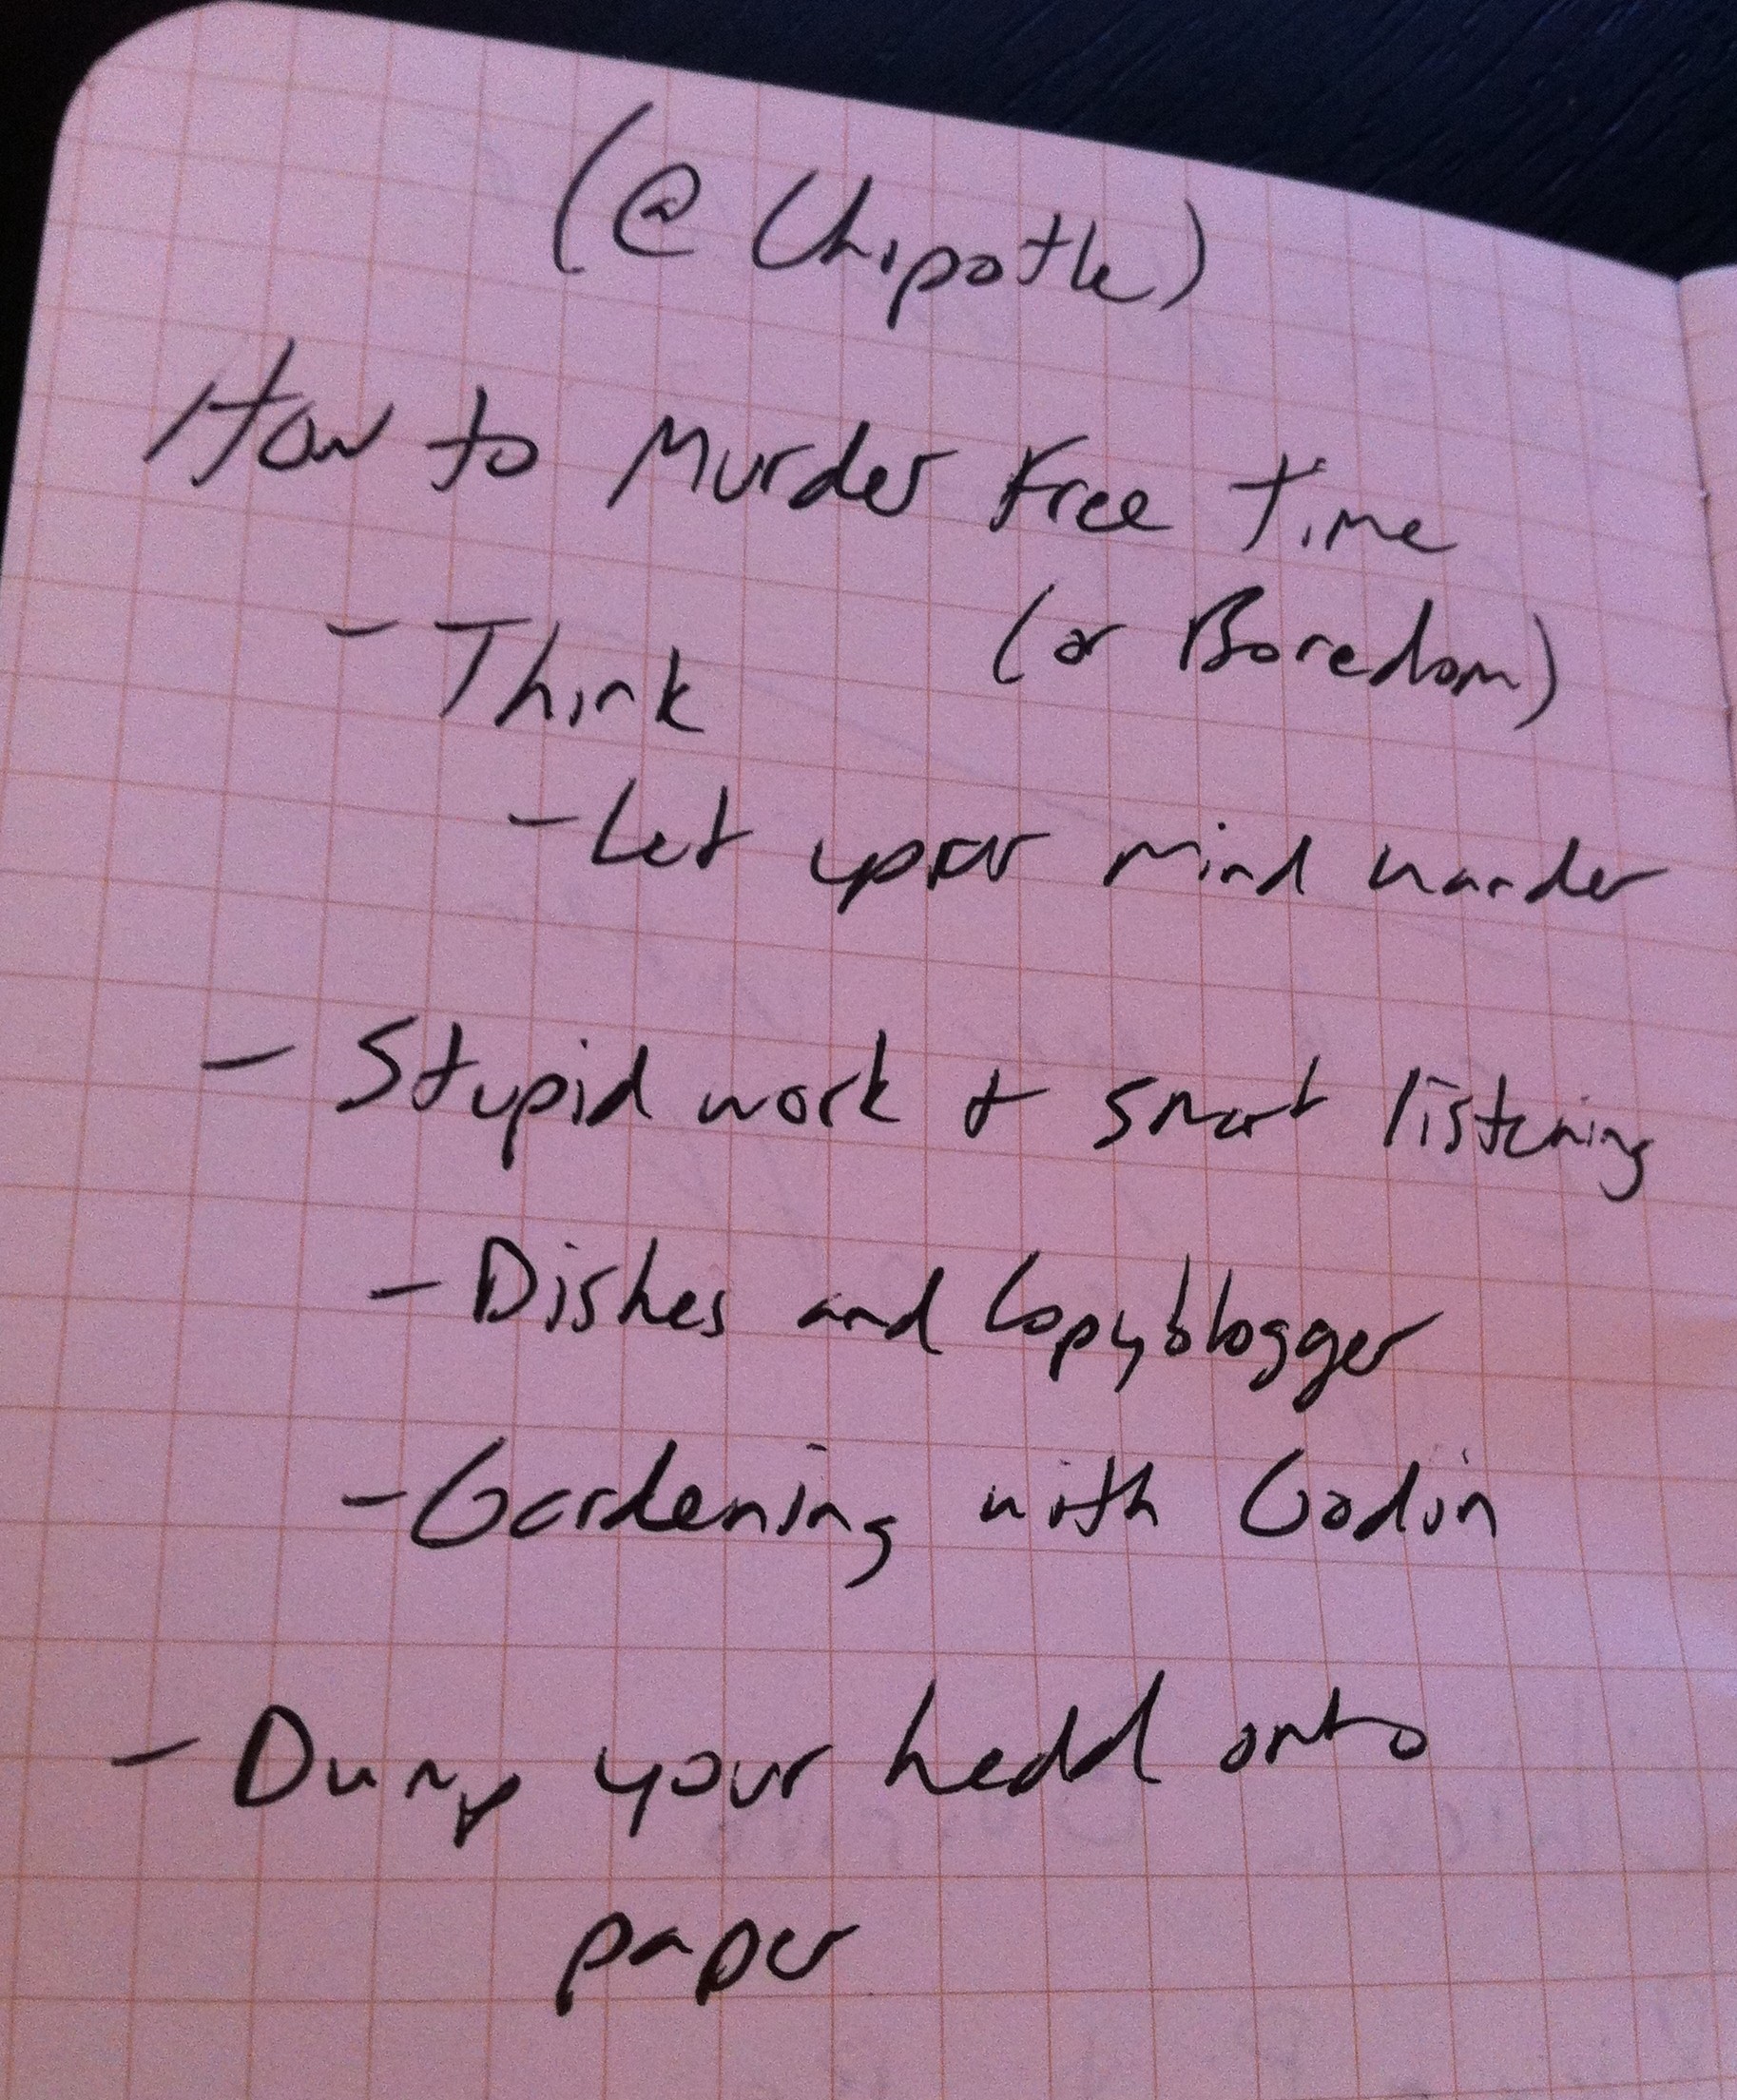 (@ Chipotle)
How to Murder Free Time
(or Boredom)
- Think
- Let your mind wander
- Stupid work + smart listening
- Dishes and Copyblogger
- Gardening with Godin
- Dump your head onto
paper